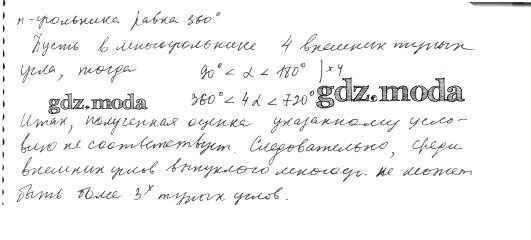 n-угольника равна 360°
Пусть в многоугольнике 4 внешних тупых
угла, тогда 90° < α < 180° | × 4
gdz.moda 360° < 4α < 720° gdz.moda
Итак, полученная оценка указанному усло-
вию не соответствует. Следовательно, среди
внешних углов выпуклого многоуг. не может
быть более 3х тупых углов.